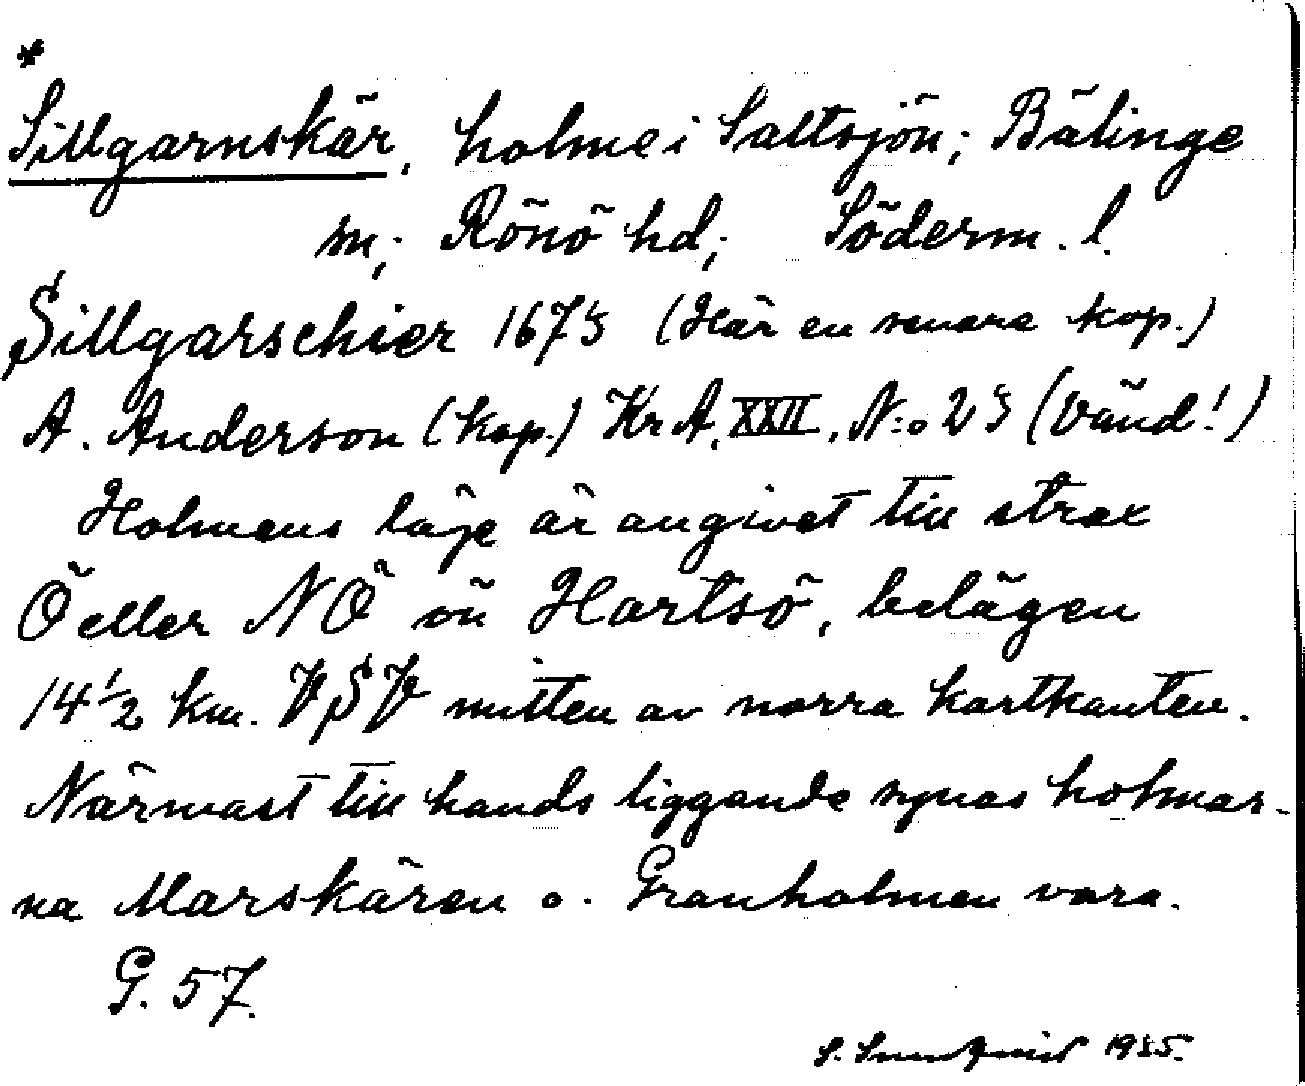 *
Sillgarnskär, holme i Saltsjön; Bälinge
sn; Rönö hd; Söderm. l.
Sillgarschier 1675 (Här en senare kop.)
A. Anderson (kop.) KrA. XXII, N:o 25 (Vänd!)
Holmens läge är angivet till strax
Ö eller NÖ om Hartsö, belägen
14½ km. VSV mitten av norra kartkanten.
Närmast till hands liggande synas holmar-
na Marskären o. Granholmen vara.
G. 57.
S.